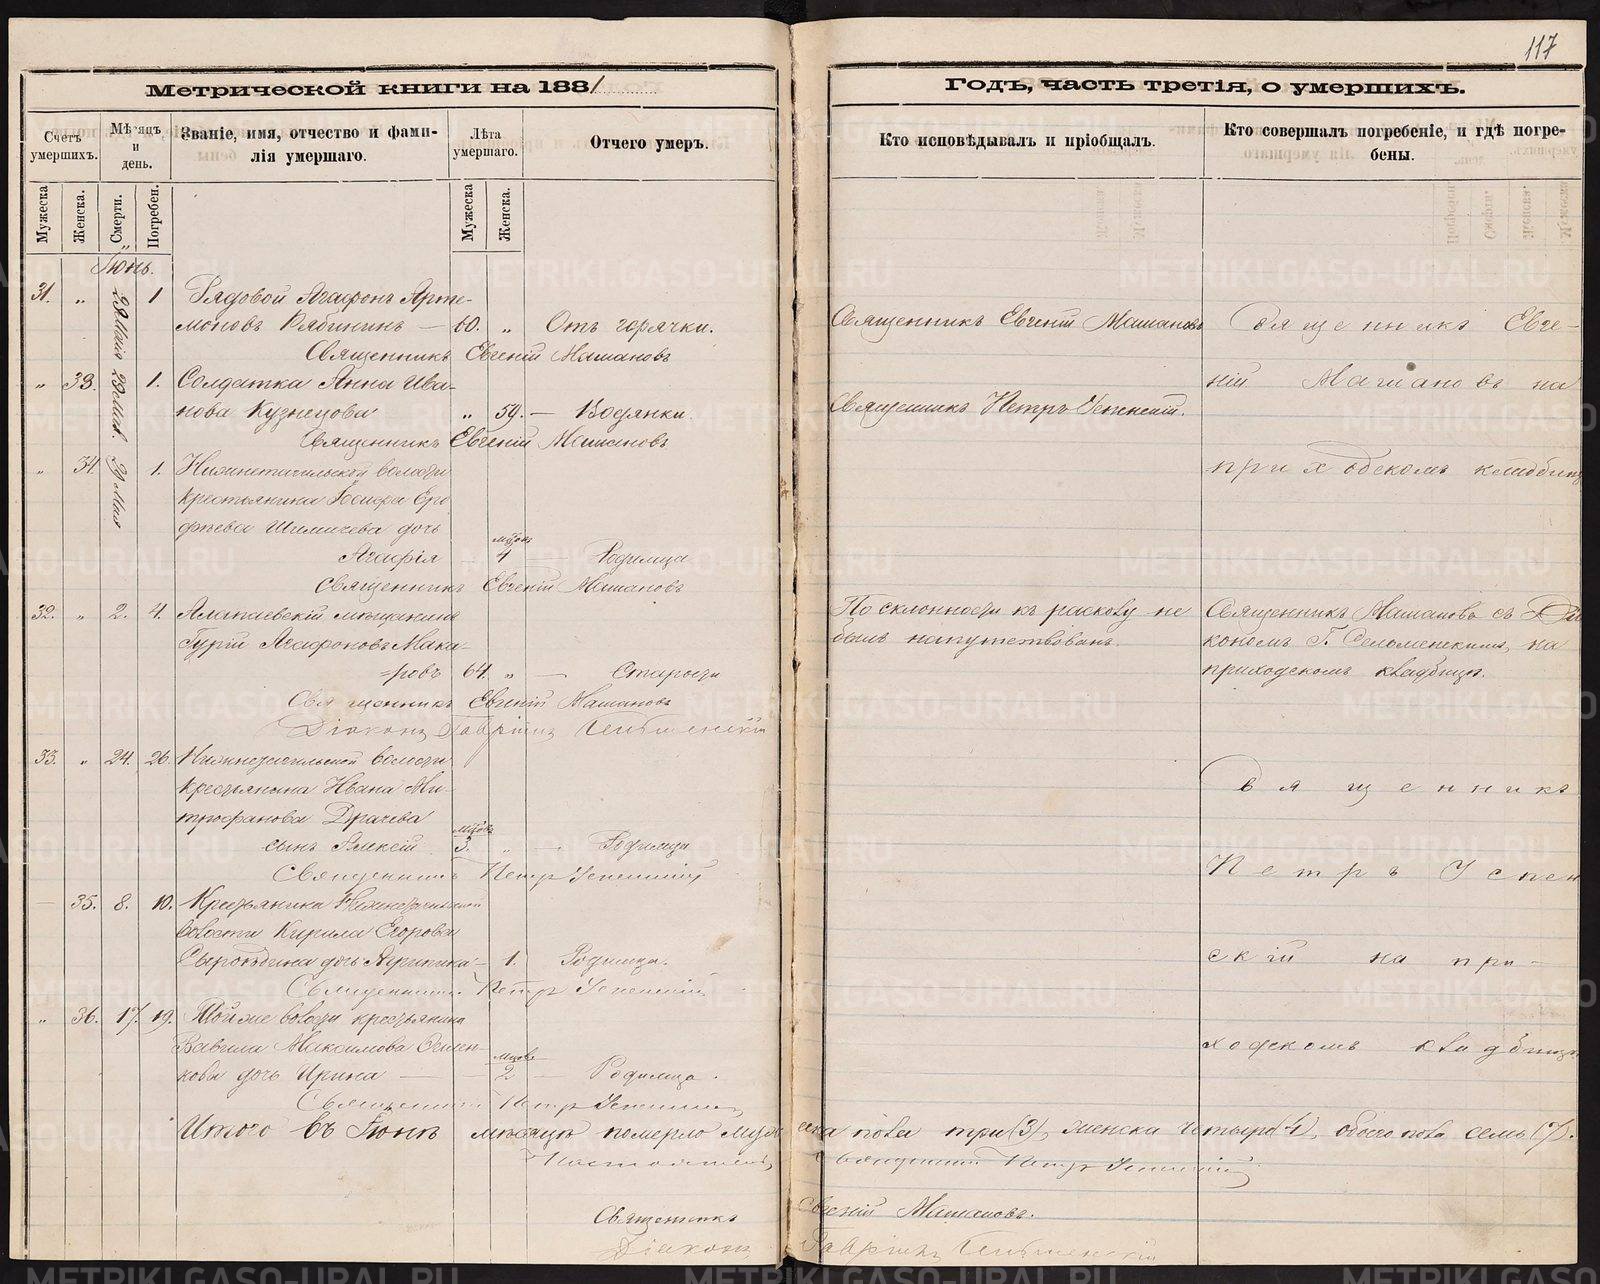 117
Метрической книги на 1881
Годъ, часть третія, о умершихъ.
Счетъ умершихъ.
Мѣсяцъ и день.
Званіе, имя, отчество и фами-
лія умершаго.
Лѣта умершаго.
Отчего умеръ.
Кто исповѣдывалъ и пріобщалъ.
Кто совершалъ погребеніе, и гдѣ погре-
бены.
Мужеска
Женска.
Смерти.
Погребен.
Мужеска
Женска.
Іюнь.
31. " 29 Мая 1 Рядовой Агафонъ Арте-
моновъ Рябининъ — 60. " Отъ горячки.
Священникъ Евгеній Машановъ
Священникъ Евгеній Машановъ
" 33. 29 Мая 1. Солдатка Анна Ива-
нова Кузнецова " 59. — Водянки.
Священникъ Евгеній Машановъ
Священникъ Петръ Успенскій.
" 34. 30 Мая 1. Нижнетагильской волости
крестьянина Іосифа Еро
фѣева дочь
Агафія 4 Родимца
Священникъ Евгеній Машановъ
Священникъ Евге-
ній Машановъ на
приходскомъ кладбищѣ
32. " 2. 4. Алапаевскій мѣщанинъ
Гурій Агафоновъ Мака-
=ровъ 64. " — Старости
Священникъ Евгеній Машановъ
Діаконъ Гавріилъ
По склонности къ расколу не
былъ напутствованъ.
Священникъ Машановъ съ Діа
кономъ Г. на
приходскомъ кладбищѣ.
33. " 24. 26. Нижнетагильской волости
крестьянина Ивана Ми-
трофанова Драчева
сынъ Алексій 3. " — Родимца
Священникъ Петръ Успенскій
35. 8. 10. Крестьянина Нижнетагильской
волости Кирила Егорова
дочь — 1. Родимца.
Священникъ Петръ Успенскій
" 36. 17. 19. Той же волости крестьянина
Вавила Максимова
кова дочь Ирина — 2 — Родимца.
Священникъ Петръ Успенскій
Священникъ
Петръ Успен
скій на при-
ходскомъ кладбищѣ
Итого въ Іюнѣ мѣсяцѣ померло муже
ска пола три (3), женска четыре (4), обоего пола семь (7).
Настоятель,
Священникъ Петръ Успенскій
Священникъ
Евгеній Машановъ.
Діаконъ
Гавріилъ
METRIKI.GASO-URAL.RU